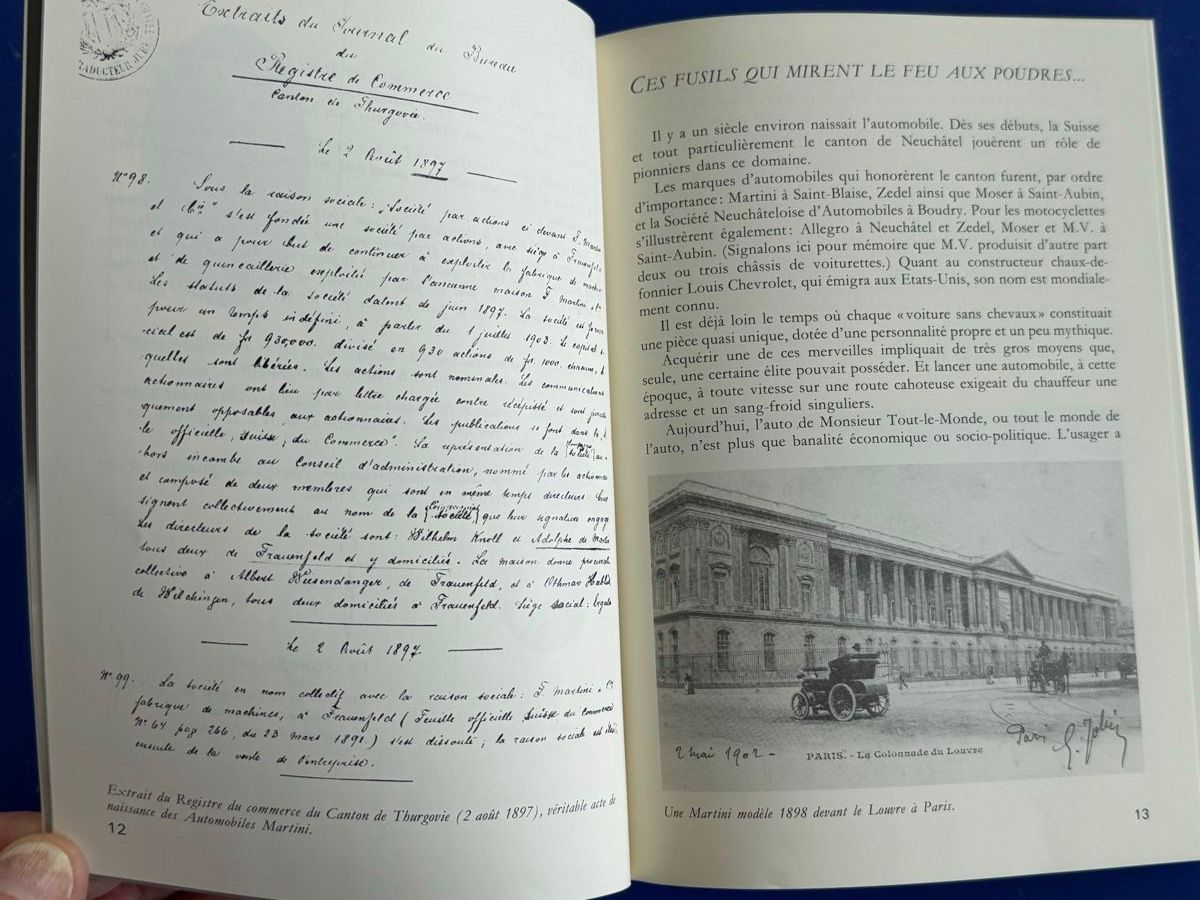 TRADUCTEUR-JURÉ
Extraits du Journal du Bureau
du
Registre de Commerce
Canton de Thurgovie.
Le 2 Août 1897
N° 98. Sous la raison sociale: „Société par actions ci devant F. Martini
et Cie" s'est fondée une société par actions, avec siège à Frauenfeld
et qui a pour but de continuer à exploiter la fabrique de machines
et de quincaillerie exploitée par l'ancienne maison F. Martini & Cie
Les statuts de la société datent de juin 1897. La société est formée
pour un temps indéfini, à partir du 1 juillet 1903. Le capital so-
cial est de fr 930,000. divisé en 930 actions de fr 1000. chacune, les
quelles sont libérées. Les actions sont nominales. Les communications
actionnaires ont lieu par lettre chargée contre récépissé et sont
quement opposables aux actionnaires. Les publications se font dans la
le officielle, suisse, du Commerce". La représentation de la société au
hors incombe au Conseil d'administration, nommé par les actionnaires
et composé de deux membres qui sont en même temps directeurs.
signent collectivement au nom de la société, que leur signature engage
Les directeurs de la société sont: Wilhelm Knoll et Adolphe de Martini
tous deux de Frauenfeld et y domiciliés. La maison donne procuration
collective à Albert Wiesendanger, de Frauenfeld, et à Othmar
de Wilchingen, tous deux domiciliés à Frauenfeld. Siège social:
Le 2 Août 1897
N° 99. La société en nom collectif avec la raison sociale: F. Martini & Cie
fabrique de machines, à Frauenfeld (Feuille officielle suisse du Commerce
N° 64 pag 266, du 23 mars 1891.) s'est dissoute; la raison sociale est
ensuite de la vente de l'entreprise.
Extrait du Registre du commerce du Canton de Thurgovie (2 août 1897), véritable acte de
naissance des Automobiles Martini.
12
CES FUSILS QUI MIRENT LE FEU AUX POUDRES...
Il y a un siècle environ naissait l'automobile. Dès ses débuts, la Suisse
et tout particulièrement le canton de Neuchâtel jouèrent un rôle de
pionniers dans ce domaine.
Les marques d'automobiles qui honorèrent le canton furent, par ordre
d'importance: Martini à Saint-Blaise, Zedel ainsi que Moser à Saint-Aubin,
et la Société Neuchâteloise d'Automobiles à Boudry. Pour les motocyclettes
s'illustrèrent également: Allegro à Neuchâtel et Zedel, Moser et M.V. à
Saint-Aubin. (Signalons ici pour mémoire que M.V. produisit d'autre part
deux ou trois châssis de voiturettes.) Quant au constructeur chaux-de-
fonnier Louis Chevrolet, qui émigra aux Etats-Unis, son nom est mondiale-
ment connu.
Il est déjà loin le temps où chaque «voiture sans chevaux» constituait
une pièce quasi unique, dotée d'une personnalité propre et un peu mythique.
Acquérir une de ces merveilles impliquait de très gros moyens que,
seule, une certaine élite pouvait posséder. Et lancer une automobile, à cette
époque, à toute vitesse sur une route cahoteuse exigeait du chauffeur une
adresse et un sang-froid singuliers.
Aujourd'hui, l'auto de Monsieur Tout-le-Monde, ou tout le monde de
l'auto, n'est plus que banalité économique ou socio-politique. L'usager a
2 mai 1902 -
PARIS. - La Colonnade du Louvre
Paris G.
Une Martini modèle 1898 devant le Louvre à Paris.
13